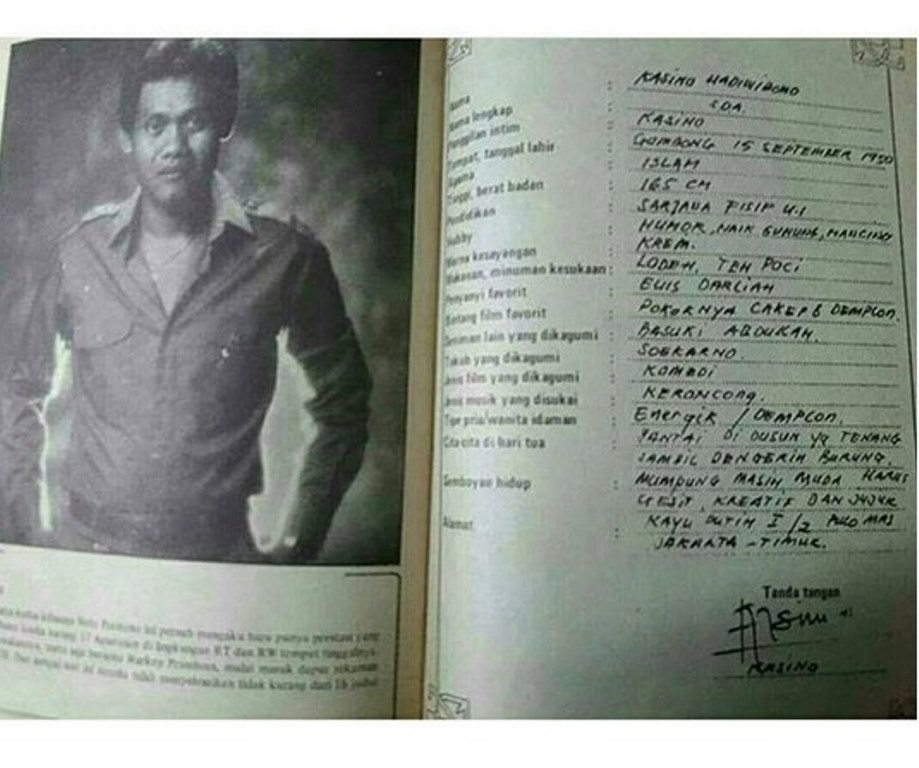 ini pernah mengaku baru punya prestasi yang
lomba karung 17 Agustusan di lingkungan RT dan RW tempat tinggalnya.
bersama Warkop Prambors, mulai masuk dapur rekaman
tidak kurang dari 16 judul
Nama : KASINO HADIWIBOWO
Nama lengkap : SDA.
Panggilan intim : KASINO
Tempat, tanggal lahir : GOMBONG 15 SEPTEMBER 1950
Agama : ISLAM
Tinggi, berat badan : 165 CM
Pendidikan : SARJANA FISIP U.I
Hobby : HUMOR, NAIK GUNUNG, MANCING
Warna kesayangan : KREM.
Makanan, minuman kesukaan : LODEH, TEH POCI
Penyanyi favorit : EUIS DARLIAH
Bintang film favorit : POKOKNYA CAKEP & DEMPLON.
Seniman lain yang dikagumi : BASUKI ABDULLAH.
Tokoh yang dikagumi : SOEKARNO.
Jenis film yang dikagumi : KOMEDI
Jenis musik yang disukai : KERONCONG.
Tipe pria/wanita idaman : Energik / DEMPLON.
Cita-cita di hari tua : SANTAI DI DUSUN yg TENANG
SAMBIL DENGERIN BURUNG.
Semboyan hidup : MUMPUNG MASIH MUDA HARUS
GESIT, KREATIF DAN JUJUR
Alamat : KAYU PUTIH I/2 PULO MAS
JAKARTA - TIMUR.
Tanda tangan
KASINO